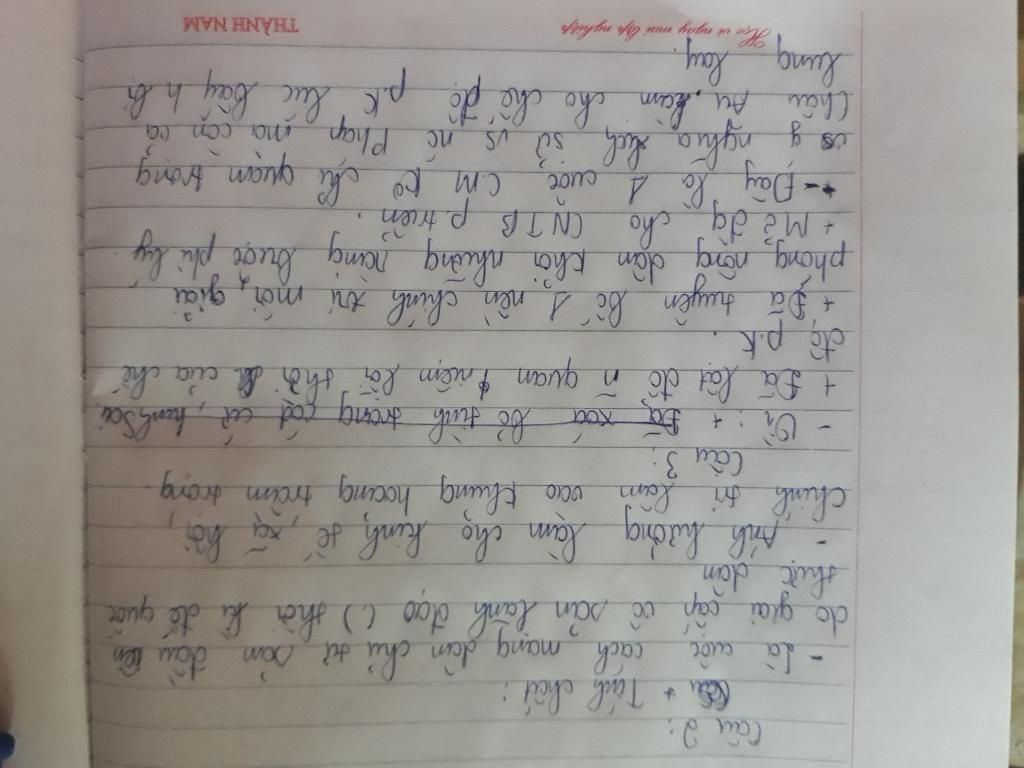 Câu 2:
+ Tính chất:
- Là cuộc cách mạng dân chủ tư sản đầu tiên
do giai cấp vô sản lãnh đạo ( ) thời kì đế quốc
thực dân
- Ảnh hưởng làm cho kinh tế, xã hội,
chính trị lâm vào khủng hoảng trầm trọng.
Câu 3:
- Vì: + Đã xoá bỏ tình trạng cát cứ,
+ Đã lật đổ n quan niệm lỗi thời của chế
độ p.K.
+ Đã truyền bá 1 nền chính trị mới, giải
phóng nông dân khỏi những ràng buộc phi lý.
+ Mở đg cho CNTB p.triển.
- Đây là 1 cuộc CM ko chỉ quan trọng
ý nghĩa lịch sử vs nc Pháp mà còn cả
Châu Âu, làm cho chế độ p.K lúc bấy h bị
lung lay.
Học vì ngày mai lập nghiệp
THÀNH NAM